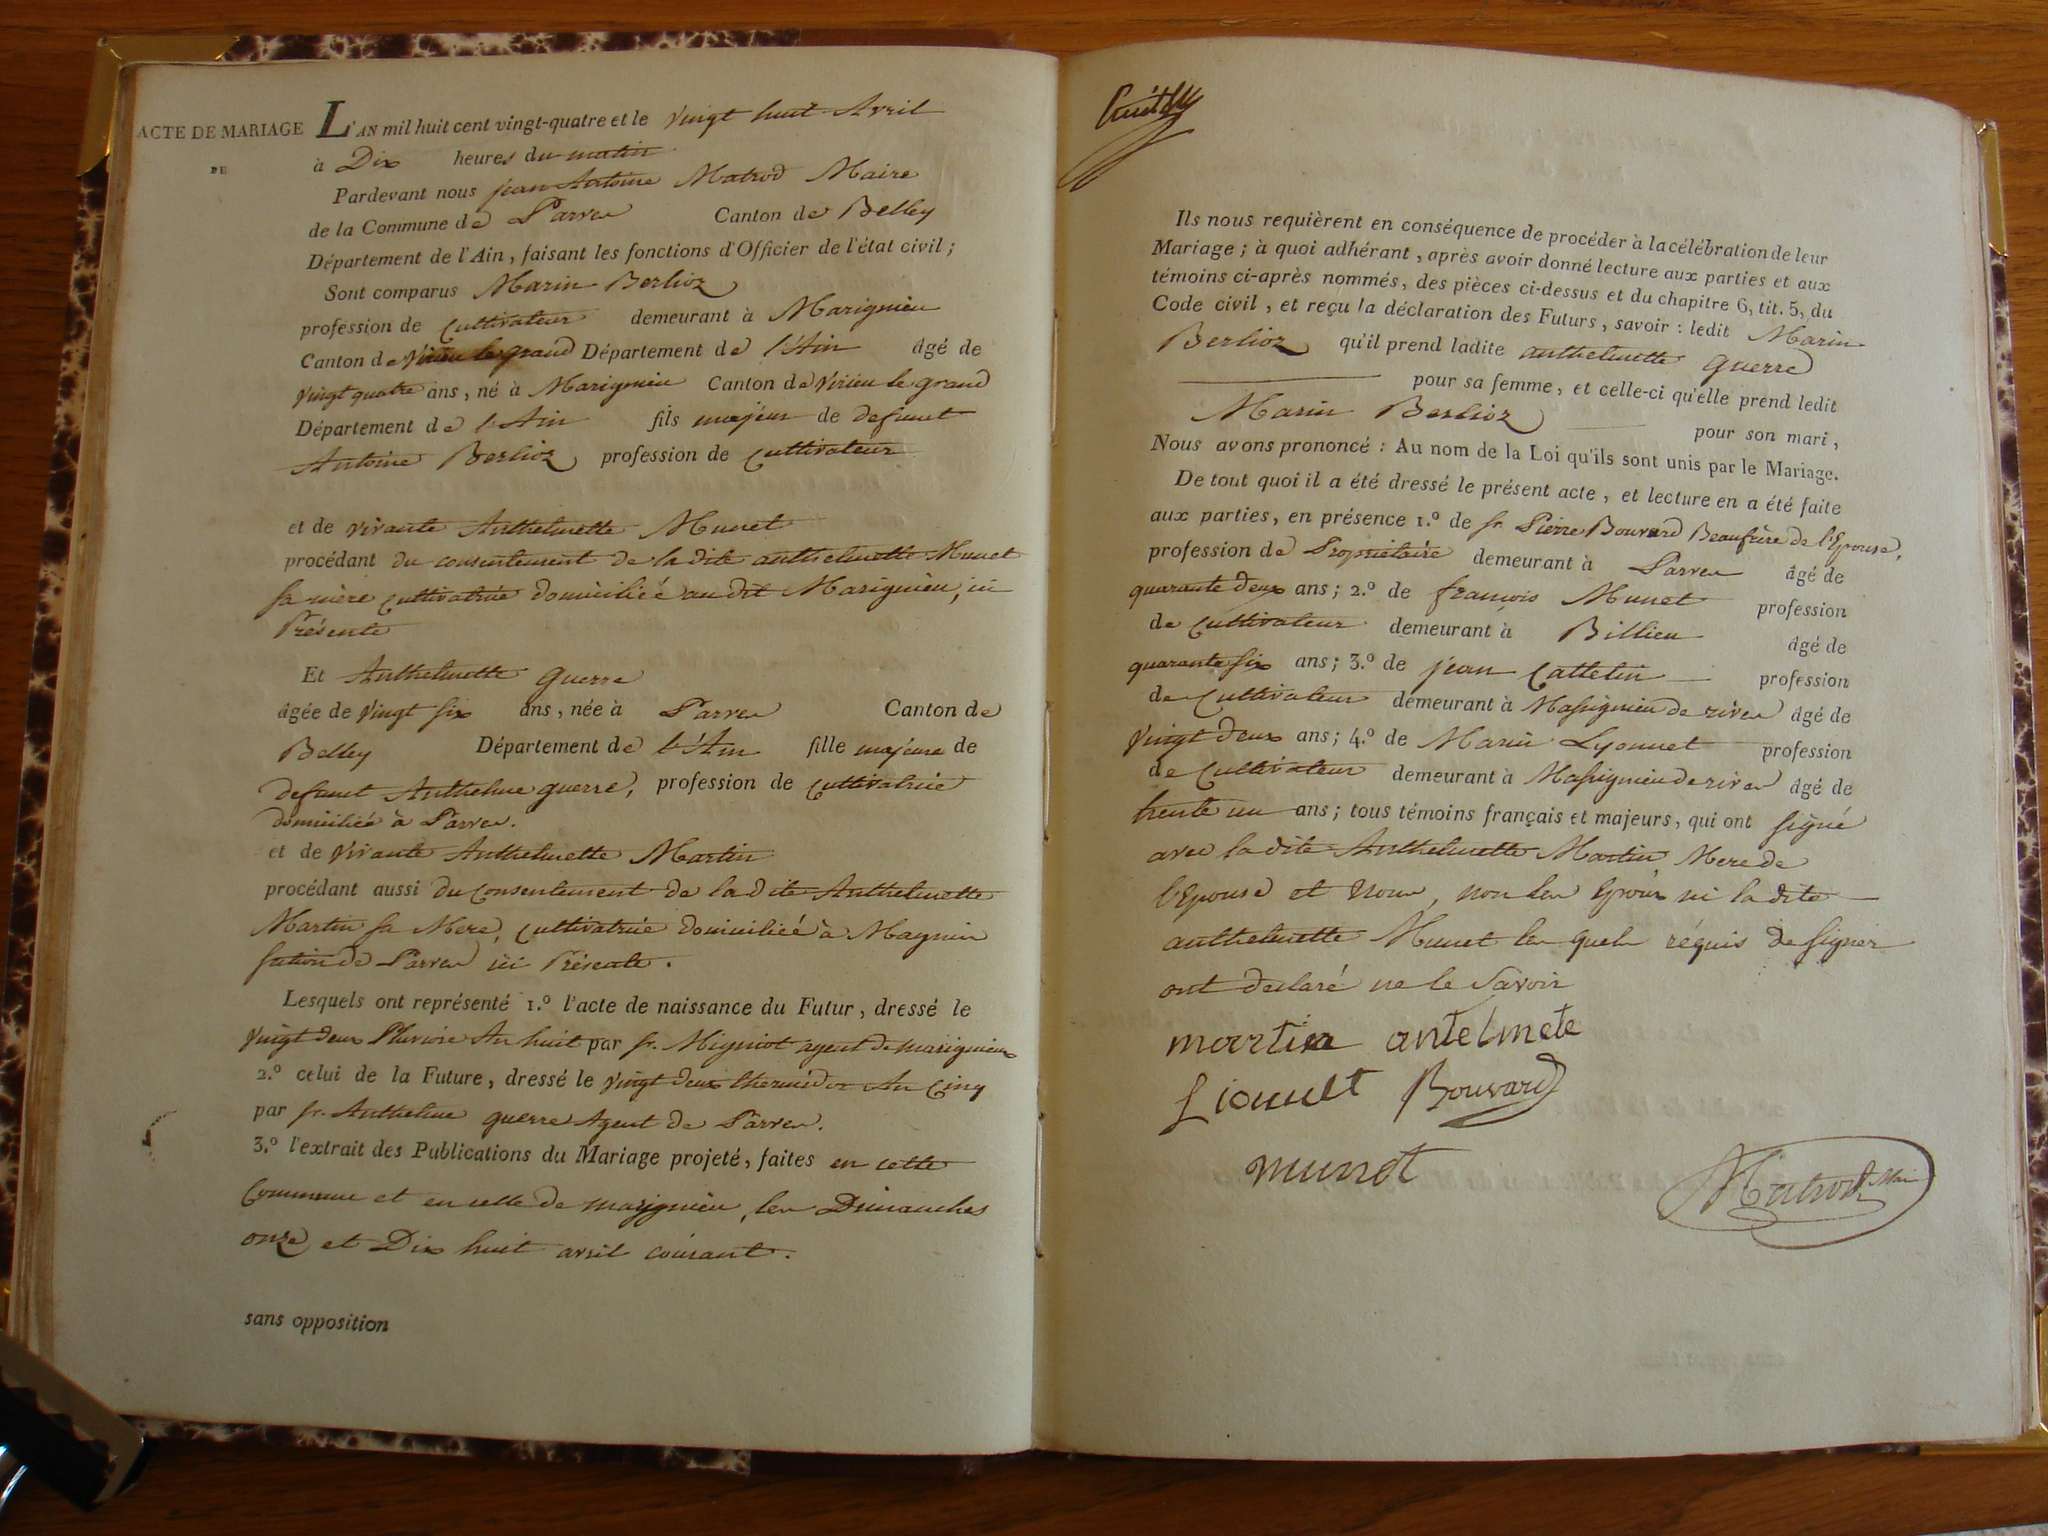 ACTE DE MARIAGE
DE
L'AN mil huit cent vingt-quatre et le vingt huit Avril
à Dix heures du matin
Pardevant nous jean Antoine Matrod Maire
de la Commune de Parves Canton de Belley
Département de l'Ain, faisant les fonctions d'Officier de l'état civil;
Sont comparus Marin Berlioz
profession de Cultivateur demeurant à Marignieu
Canton de Virieu le grand Département de l'Ain âgé de
vingt quatre ans, né à Marignieu Canton de Virieu le grand
Département de l'Ain fils majeur de defunct
Antoine Berlioz profession de Cultivateur
et de vivante Anthelmette Munet
procédant du consentement de la dite anthelmette Munet
sa mère Cultivatrice domiciliée au dit Marignieu, ici
Présente
Et Anthelmette Guerre
âgée de vingt six ans, née à Parves Canton de
Belley Département de l'Ain fille majeure de
defunct Anthelme guerre, profession de Cultivatrice
domiciliée à Parves.
et de vivante Anthelmette Martin
procédant aussi du Consentement de la dite Anthelmette
Martin sa Mere, Cultivatrice domiciliée à
de Parves ici Présente.
Lesquels ont représenté 1.º l'acte de naissance du Futur, dressé le
vingt deux Pluviose An huit par sr. Migniot agent de marignieu
2.º celui de la Future, dressé le vingt deux thermidor An Cinq
par sr. Anthelme guerre Agent de Parves.
3.º l'extrait des Publications du Mariage projeté, faites en cette
Commune et en celle de marignieu, les Dimanches
onze et Dix huit avril courant.
sans opposition
Ils nous requièrent en conséquence de procéder à la célébration de leur
Mariage; à quoi adhérant, après avoir donné lecture aux parties et aux
témoins ci-après nommés, des pièces ci-dessus et du chapitre 6, tit. 5, du
Code civil, et reçu la déclaration des Futurs, savoir: ledit Marin
Berlioz qu'il prend ladite anthelmette guerre
pour sa femme, et celle-ci qu'elle prend ledit
Marin Berlioz pour son mari,
Nous avons prononcé: Au nom de la Loi qu'ils sont unis par le Mariage.
De tout quoi il a été dressé le présent acte, et lecture en a été faite
aux parties, en présence 1.º de sr. Pierre Bouvard Beaufrère de l'Epouse,
profession de Propriétaire demeurant à Parves âgé de
quarante deux ans; 2.º de françois Munet profession
de Cultivateur demeurant à Billieu âgé de
quarante six ans; 3.º de jean Cattelin profession
de Cultivateur demeurant à Massignieu de rives âgé de
vingt deux ans; 4.º de Marin Lyonnet profession
de Cultivateur demeurant à Massignieu de rives âgé de
trente un ans; tous témoins français et majeurs, qui ont signé
avec la dite Anthelmette Martin Mere de
l'Epouse et Nous, non les Epoux ni la dite
anthelmette Munet les quels réquis de signer
ont declaré ne le Savoir
martin antelmete
Lionnet Bouvard
munet
Matrod Mre